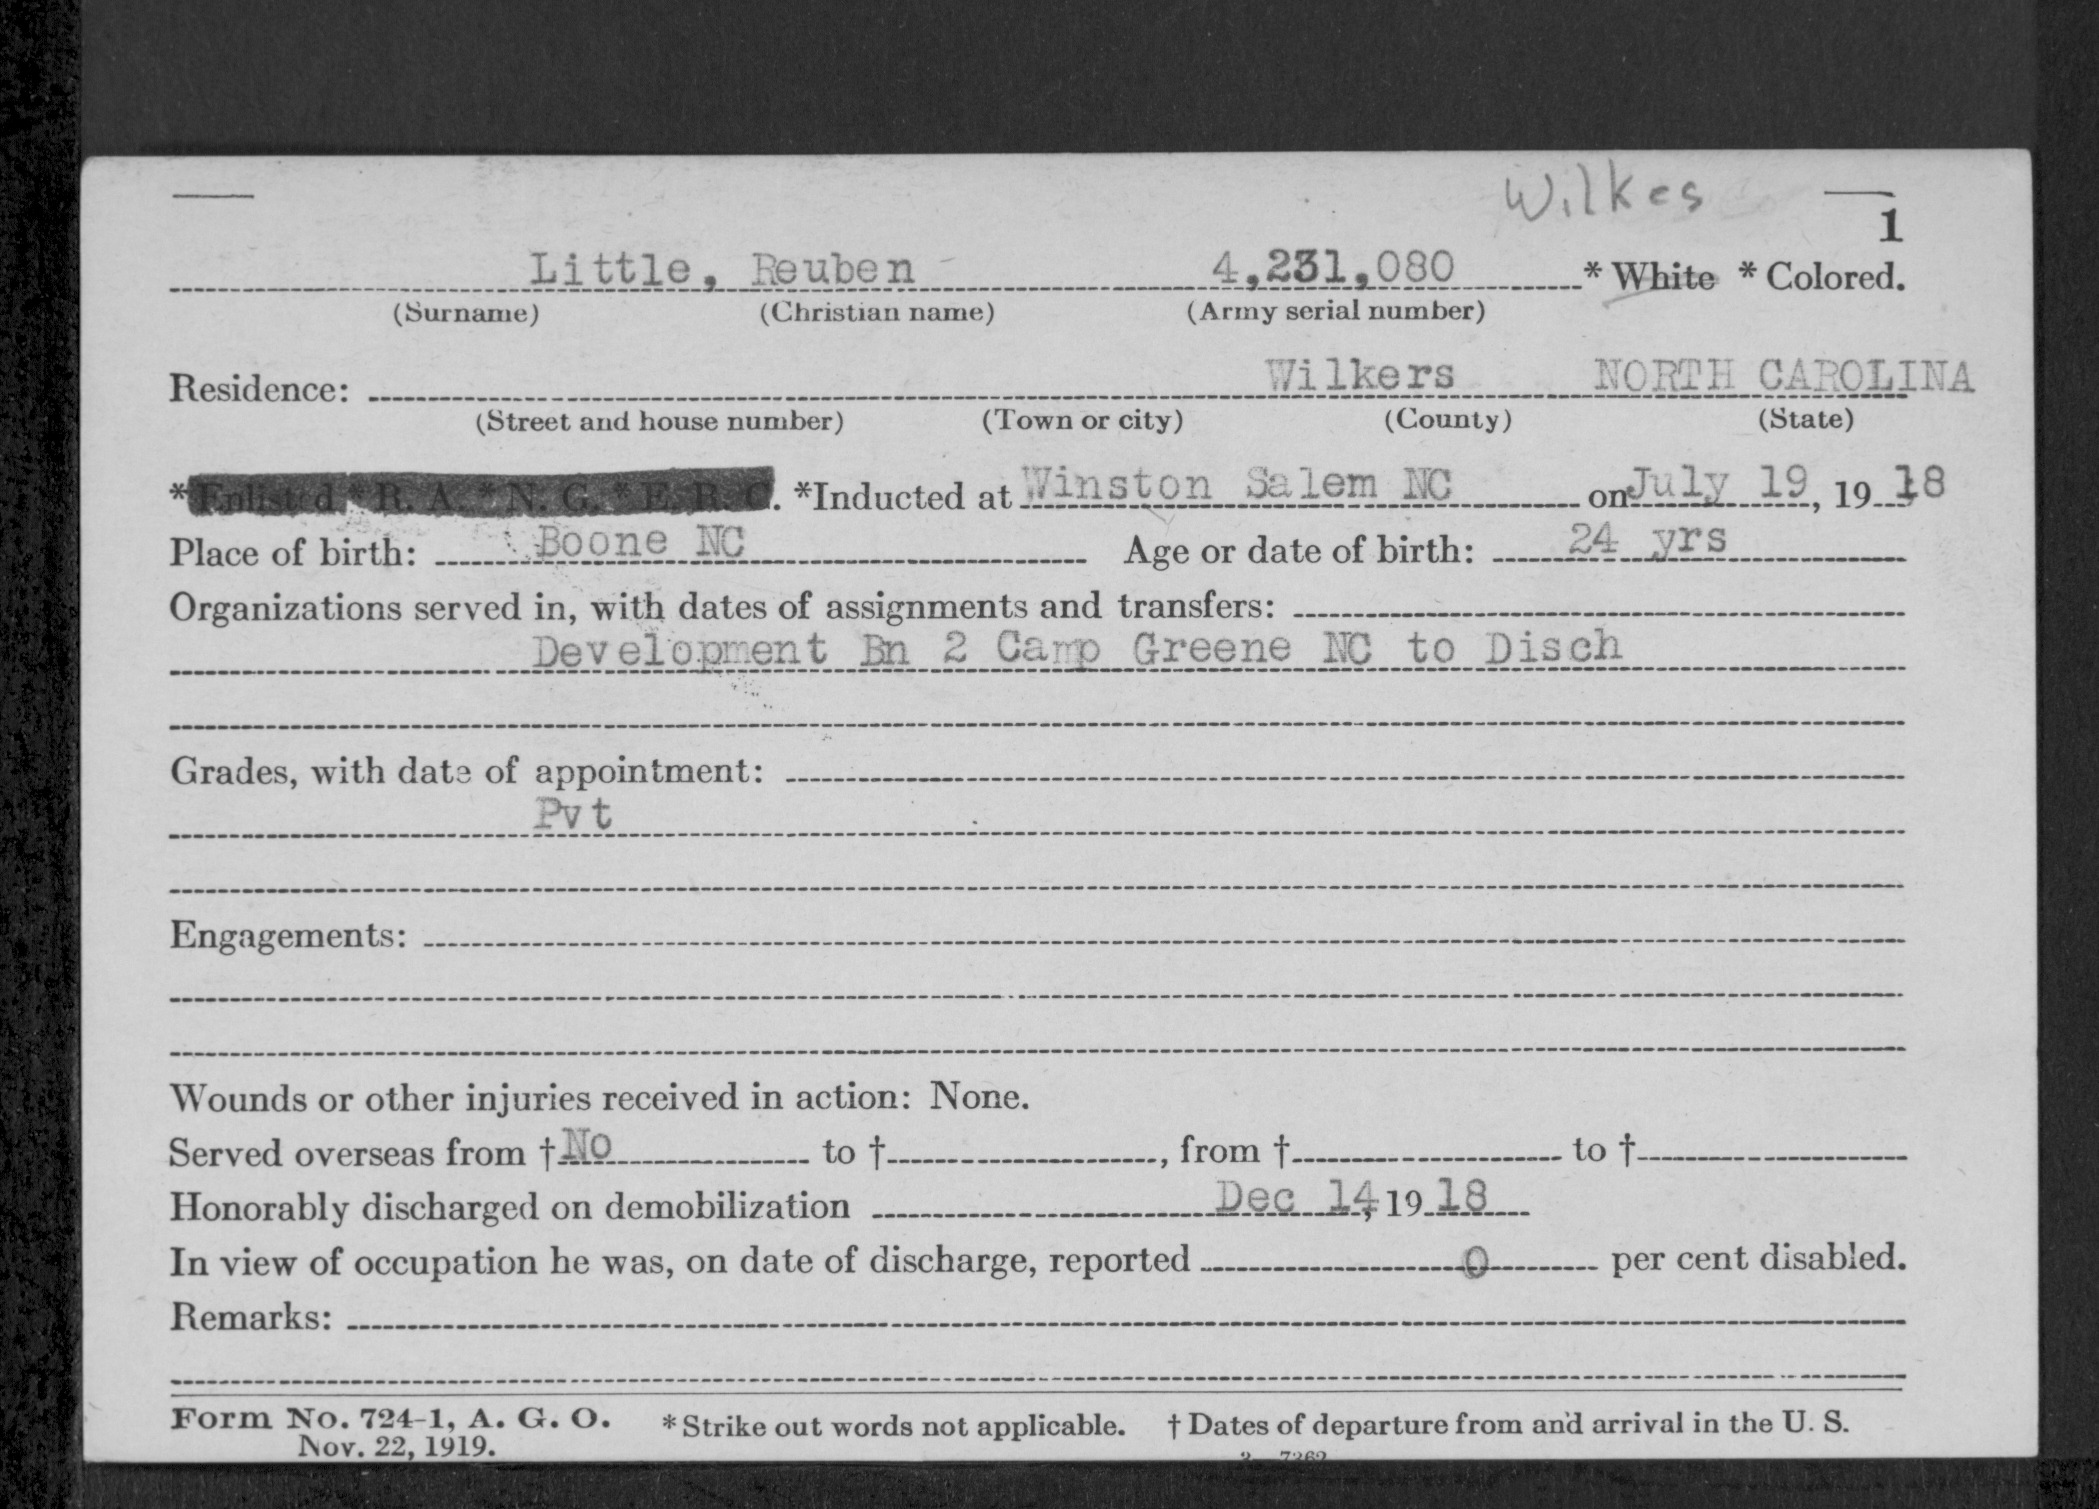 Wilkes
1
Little, Reuben 4,231,080 * White * Colored.
(Surname) (Christian name) (Army serial number)
Wilkers NORTH CAROLINA
Residence:
(Street and house number) (Town or city) (County) (State)
*Enlisted *R. A. *N. G. *E. R. C. *Inducted at Winston Salem NC on July 19, 19 18
Place of birth: Boone NC Age or date of birth: 24 yrs
Organizations served in, with dates of assignments and transfers:
Development Bn 2 Camp Greene NC to Disch
Grades, with date of appointment:
Pvt
Engagements:
Wounds or other injuries received in action: None.
Served overseas from †No to †, from † to †
Honorably discharged on demobilization Dec 14, 19 18
In view of occupation he was, on date of discharge, reported 0 per cent disabled.
Remarks:
Form No. 724-1, A. G. O. *Strike out words not applicable. † Dates of departure from and arrival in the U. S.
Nov. 22, 1919.